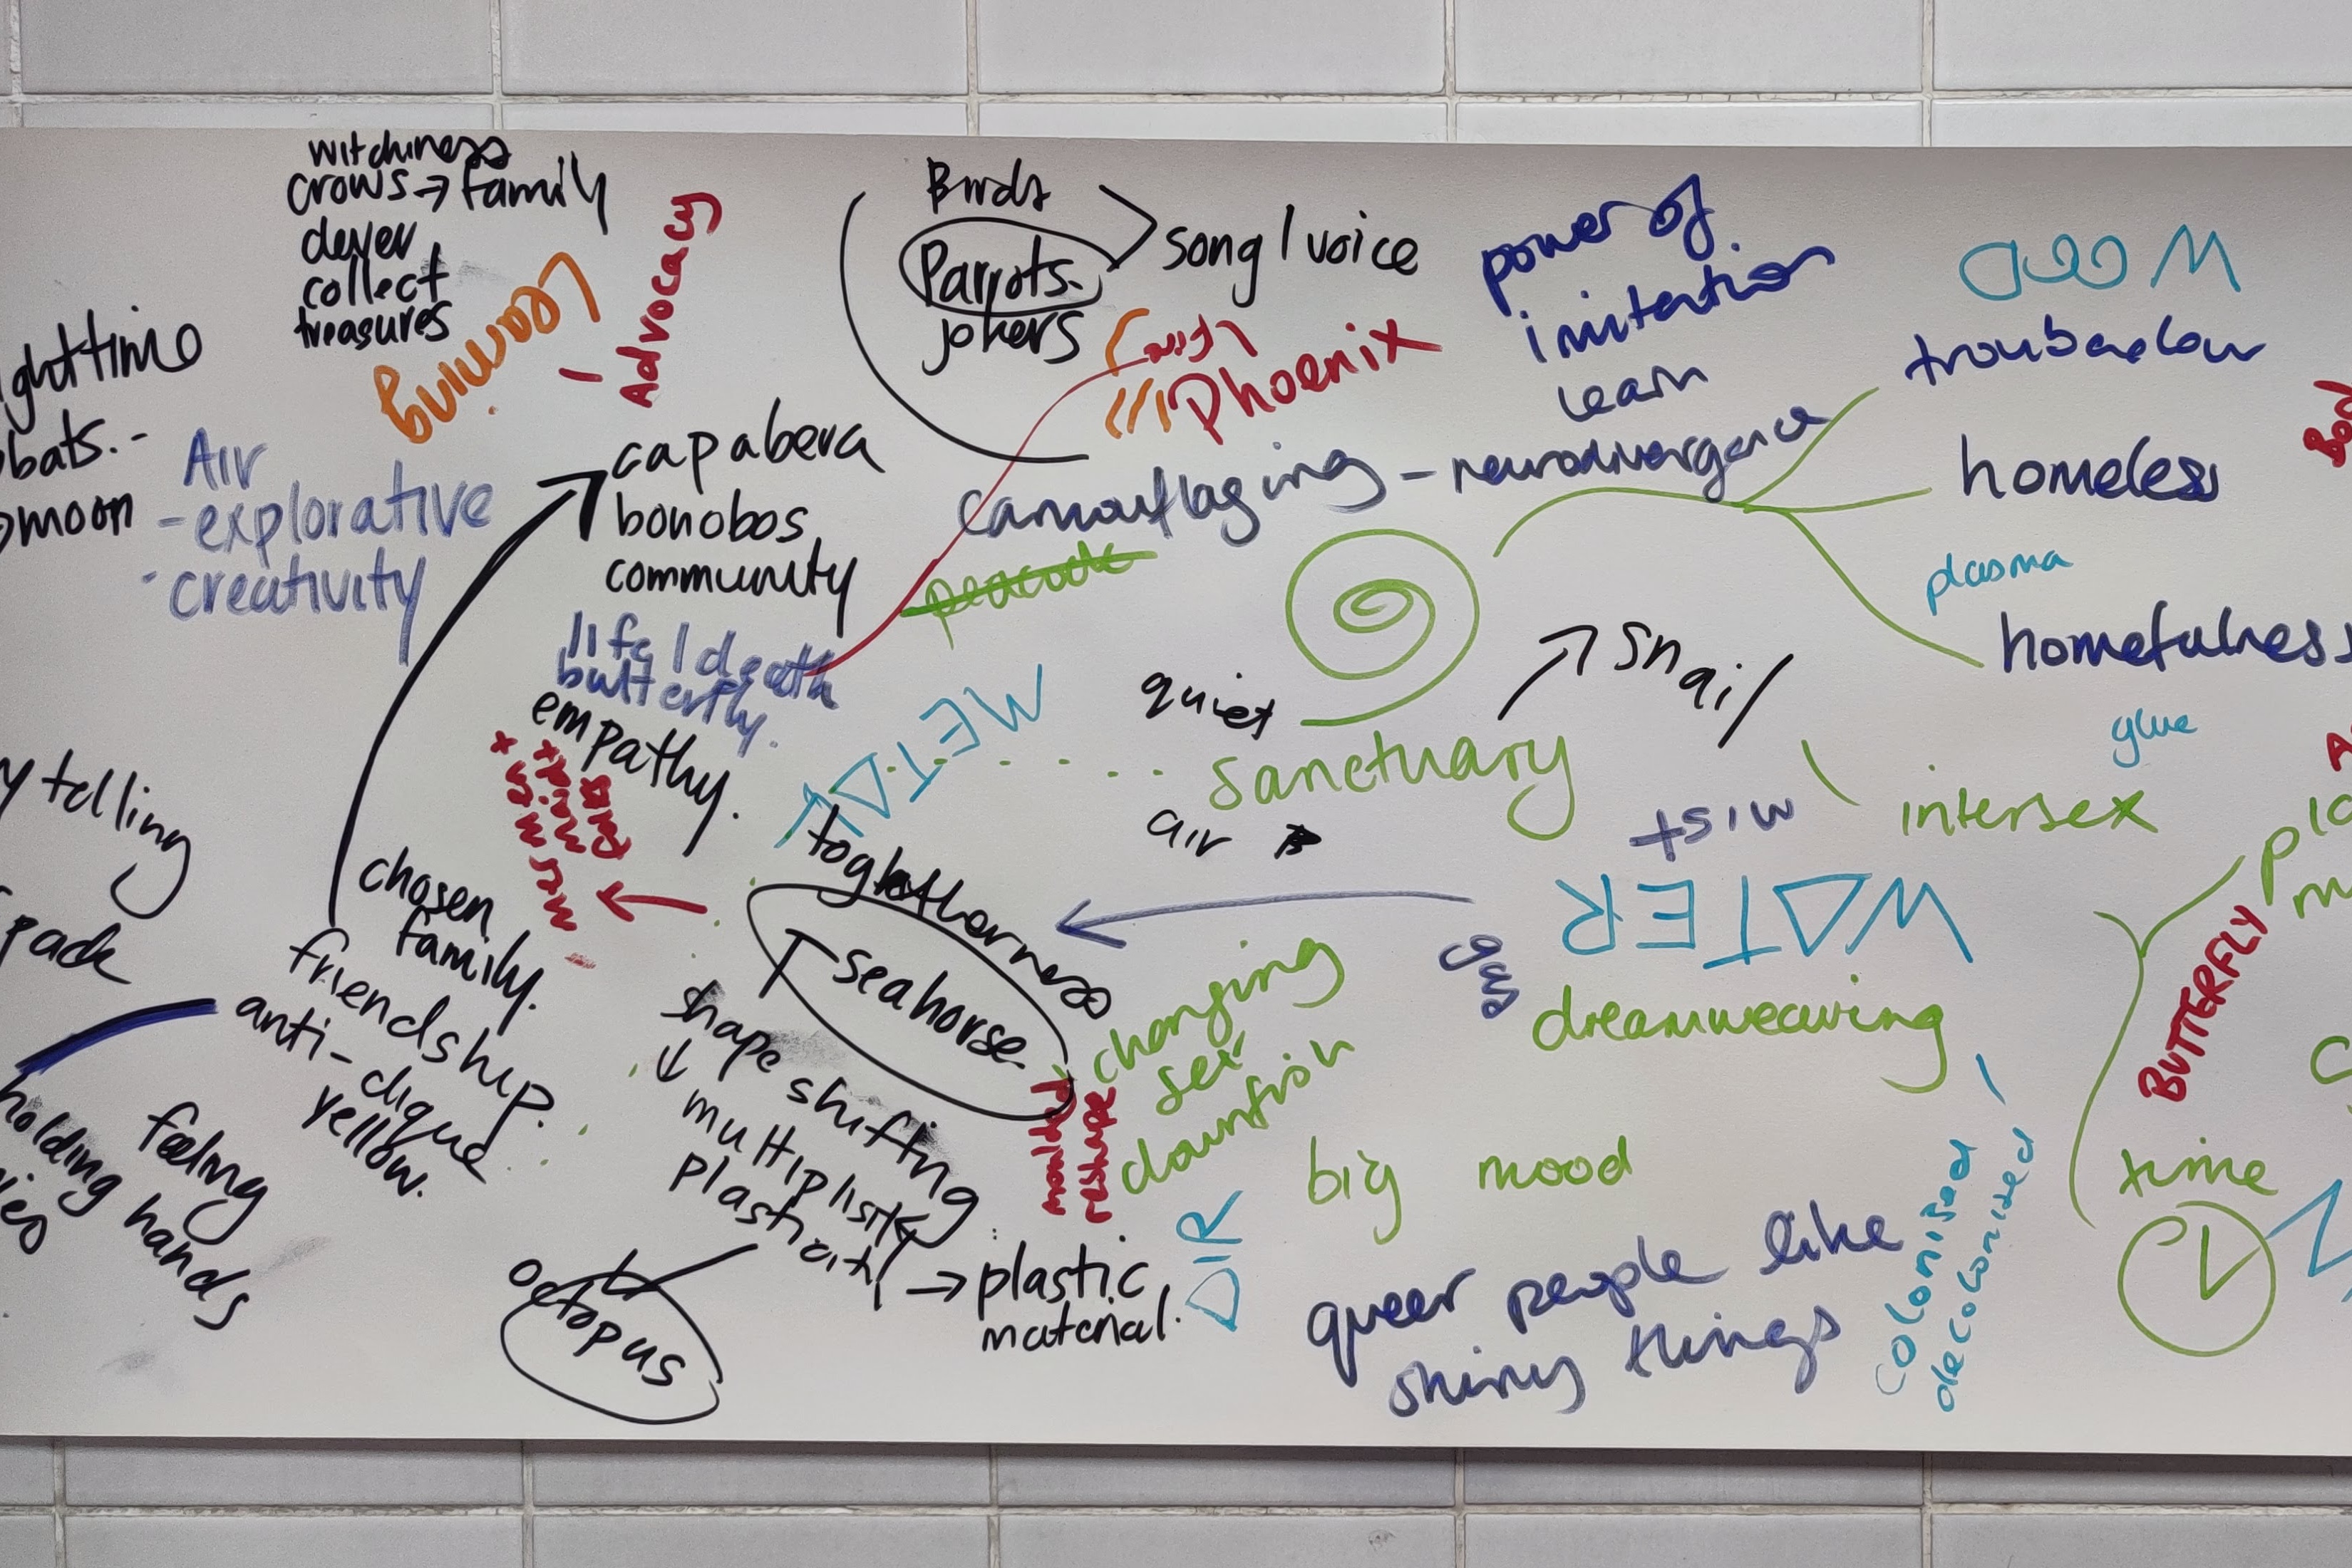 witchiness
crows → family
clever
collect
treasures
Learning
Advocacy
bats.-
moon
Air
- explorative
- creativity
capabera
bonobos
community
life / death
butterfly.
empathy.
Birds
Parrots.
jokers
song / voice
Phoenix
power of
imitation
learn
camouflaging - neurodivergence
peacock
WOOD
troubadour
homeless
plasma
homefulness
snail
quiet
METAL
sanctuary
air
mist
WATER
glue
intersex
telling
pack
chosen
family.
friendship.
anti-clique
yellow.
holding hands
feeling
togetherness
seahorse.
shape shifting
multiplicity
plasticity → plastic
material.
octopus
moulded
reshape
changing
dreamweaving
AIR
big mood
queer people like
shiny things
colonised
decolonised
BUTTERFLY
time